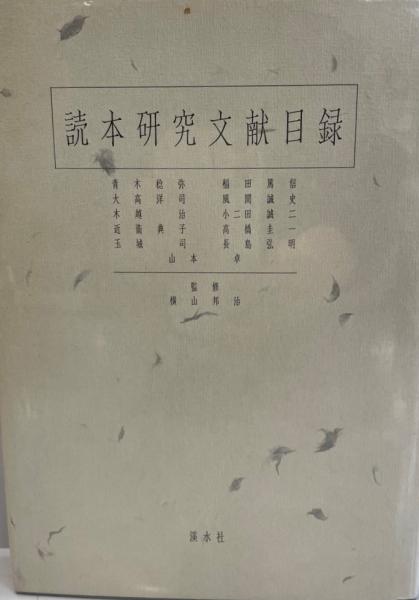 読本研究文献目録
青木稔弥 稲田篤信
大高洋司 風間誠史
木越治 小二田誠二
近衞典子 高橋圭一
玉城司 長島弘明
山本卓
監修
横山邦治
溪水社